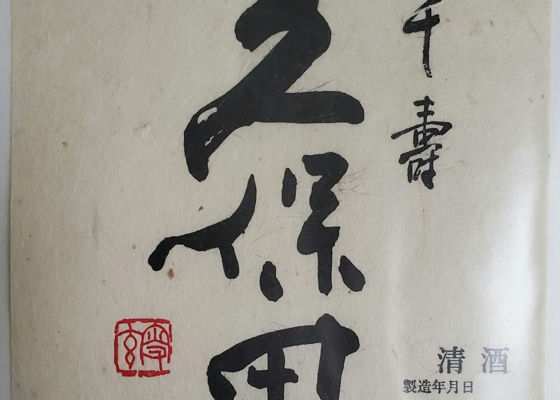 久保田
千壽
清酒
製造年月日